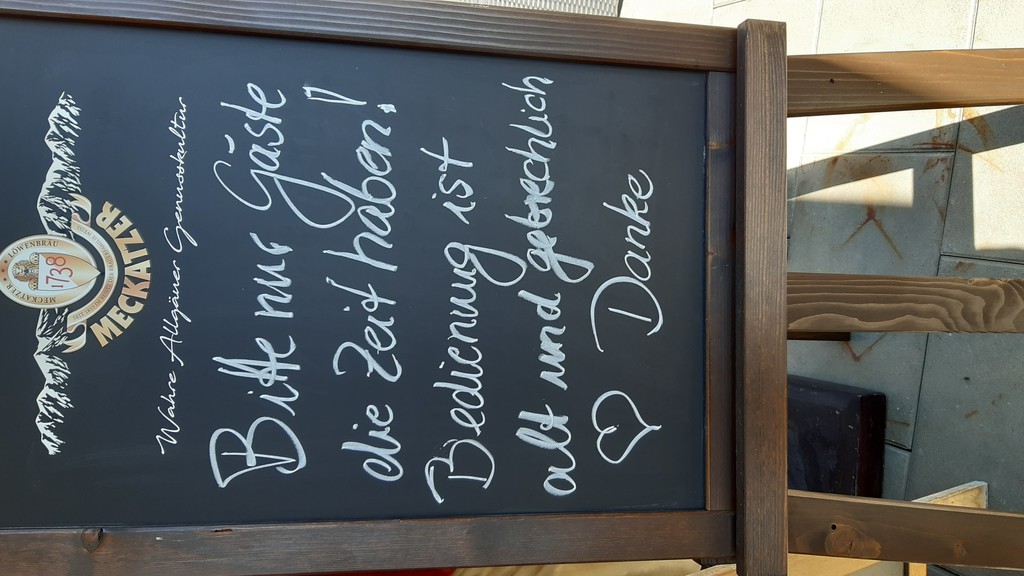 LÖWENBRÄU
1738
MECKATZER
MECKATZER
Wahre Allgäuer Genusskultur
Bitte nur Gäste
die Zeit haben!
Bedienung ist
alt und gebrechlich
Danke